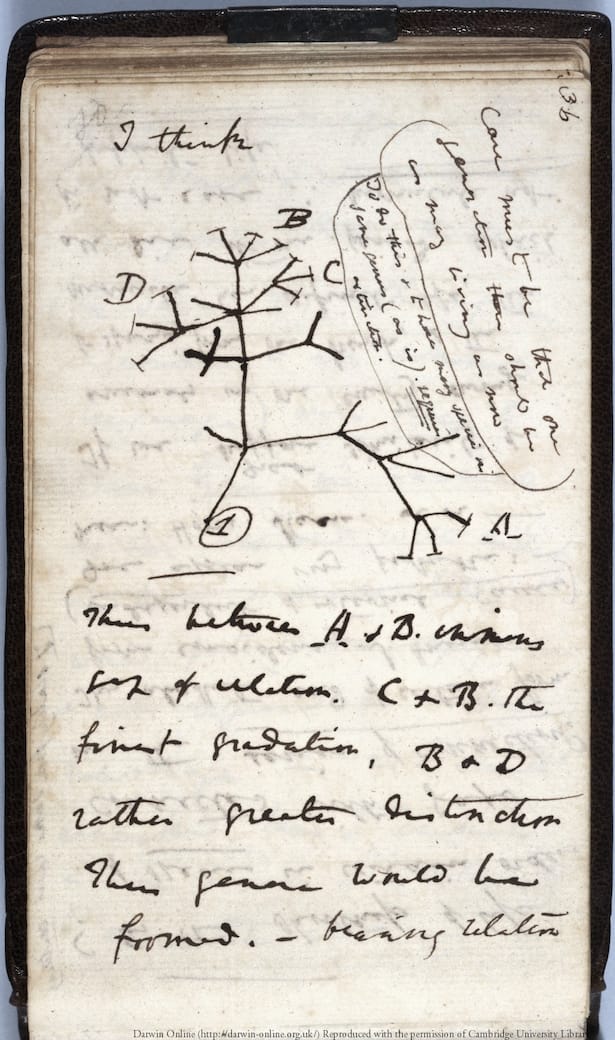 36
I think
Case must be that one
generation then should be
as many living as now
To do this & to have many species in
same genus (as is). requires
extinction.
B
C
D
A
1
Thus between A & B. immens
gap of relation. C & B. The
finest gradation, B & D
rather greater distinction
Thus genera would be
formed. — bearing relation
Darwin Online (http://darwin-online.org.uk/) Reproduced with the permission of Cambridge University Librar